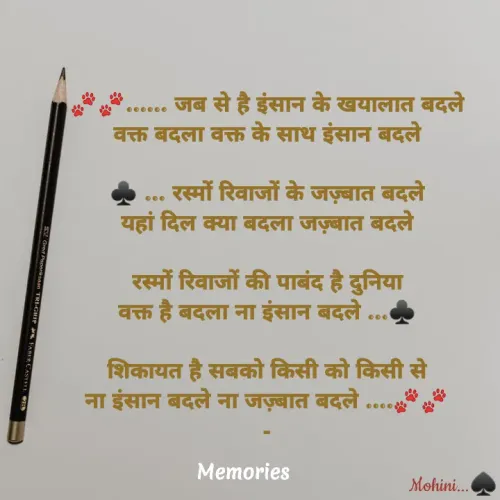 🐾🐾...... जब से है इंसान के खयालात बदले
वक्त बदला वक्त के साथ इंसान बदले
♣ ... रस्मों रिवाजों के जज़्बात बदले
यहां दिल क्या बदला जज़्बात बदले
रस्मों रिवाजों की पाबंद है दुनिया
वक्त है बदला ना इंसान बदले ...♣
शिकायत है सबको किसी को किसी से
ना इंसान बदले ना जज़्बात बदले .....🐾🐾
-
Memories
Mohini...♠
TRI-GRIP FABER-CASTELL